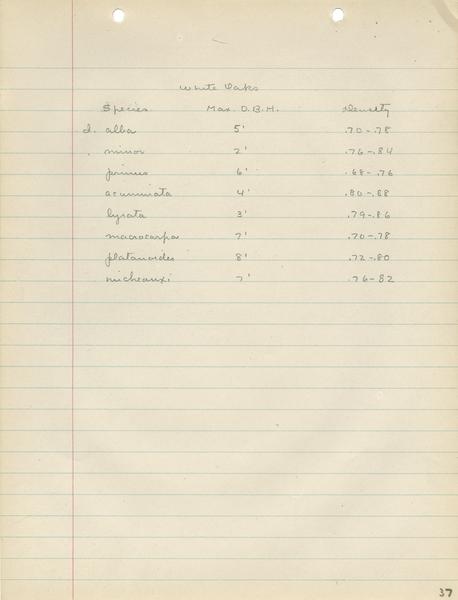 White Oaks
Species Max. D.B.H. Density
alba 5' .70-.78
minor 2' .76-.84
prinus 6' .68-.76
acuminata 4' .80-.88
lyrata 3' .79-.86
macrocarpa 7' .70-.78
platanoides 8' .72-.80
micheauxi 7' .76-82
37